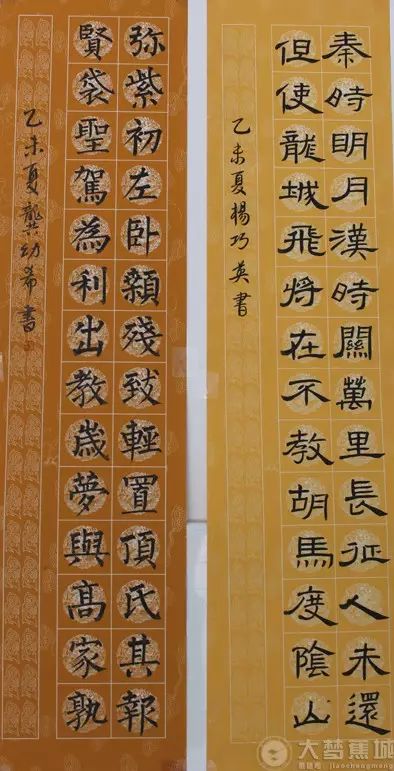 秦時明月漢時關萬里長征人未還
但使龍城飛將在不教胡馬度陰山
乙未夏楊巧英書
弥紫初左卧顙殘致輕置頂氏其報
賢袋聖駕為利出教歲夢與髙家孰
乙未夏龔幼希書
大梦蕉城
jiaochengmeng